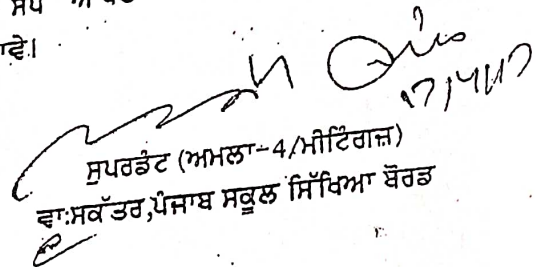 ਾਵੇ।
17/4/17
ਸੁਪਰਡੰਟ (ਅਮਲਾ-4/ਮੀਟਿੰਗਜ਼)
ਵਾ:ਸਕੱਤਰ,ਪੰਜਾਬ ਸਕੂਲ ਸਿੱਖਿਆ ਬੋਰਡ